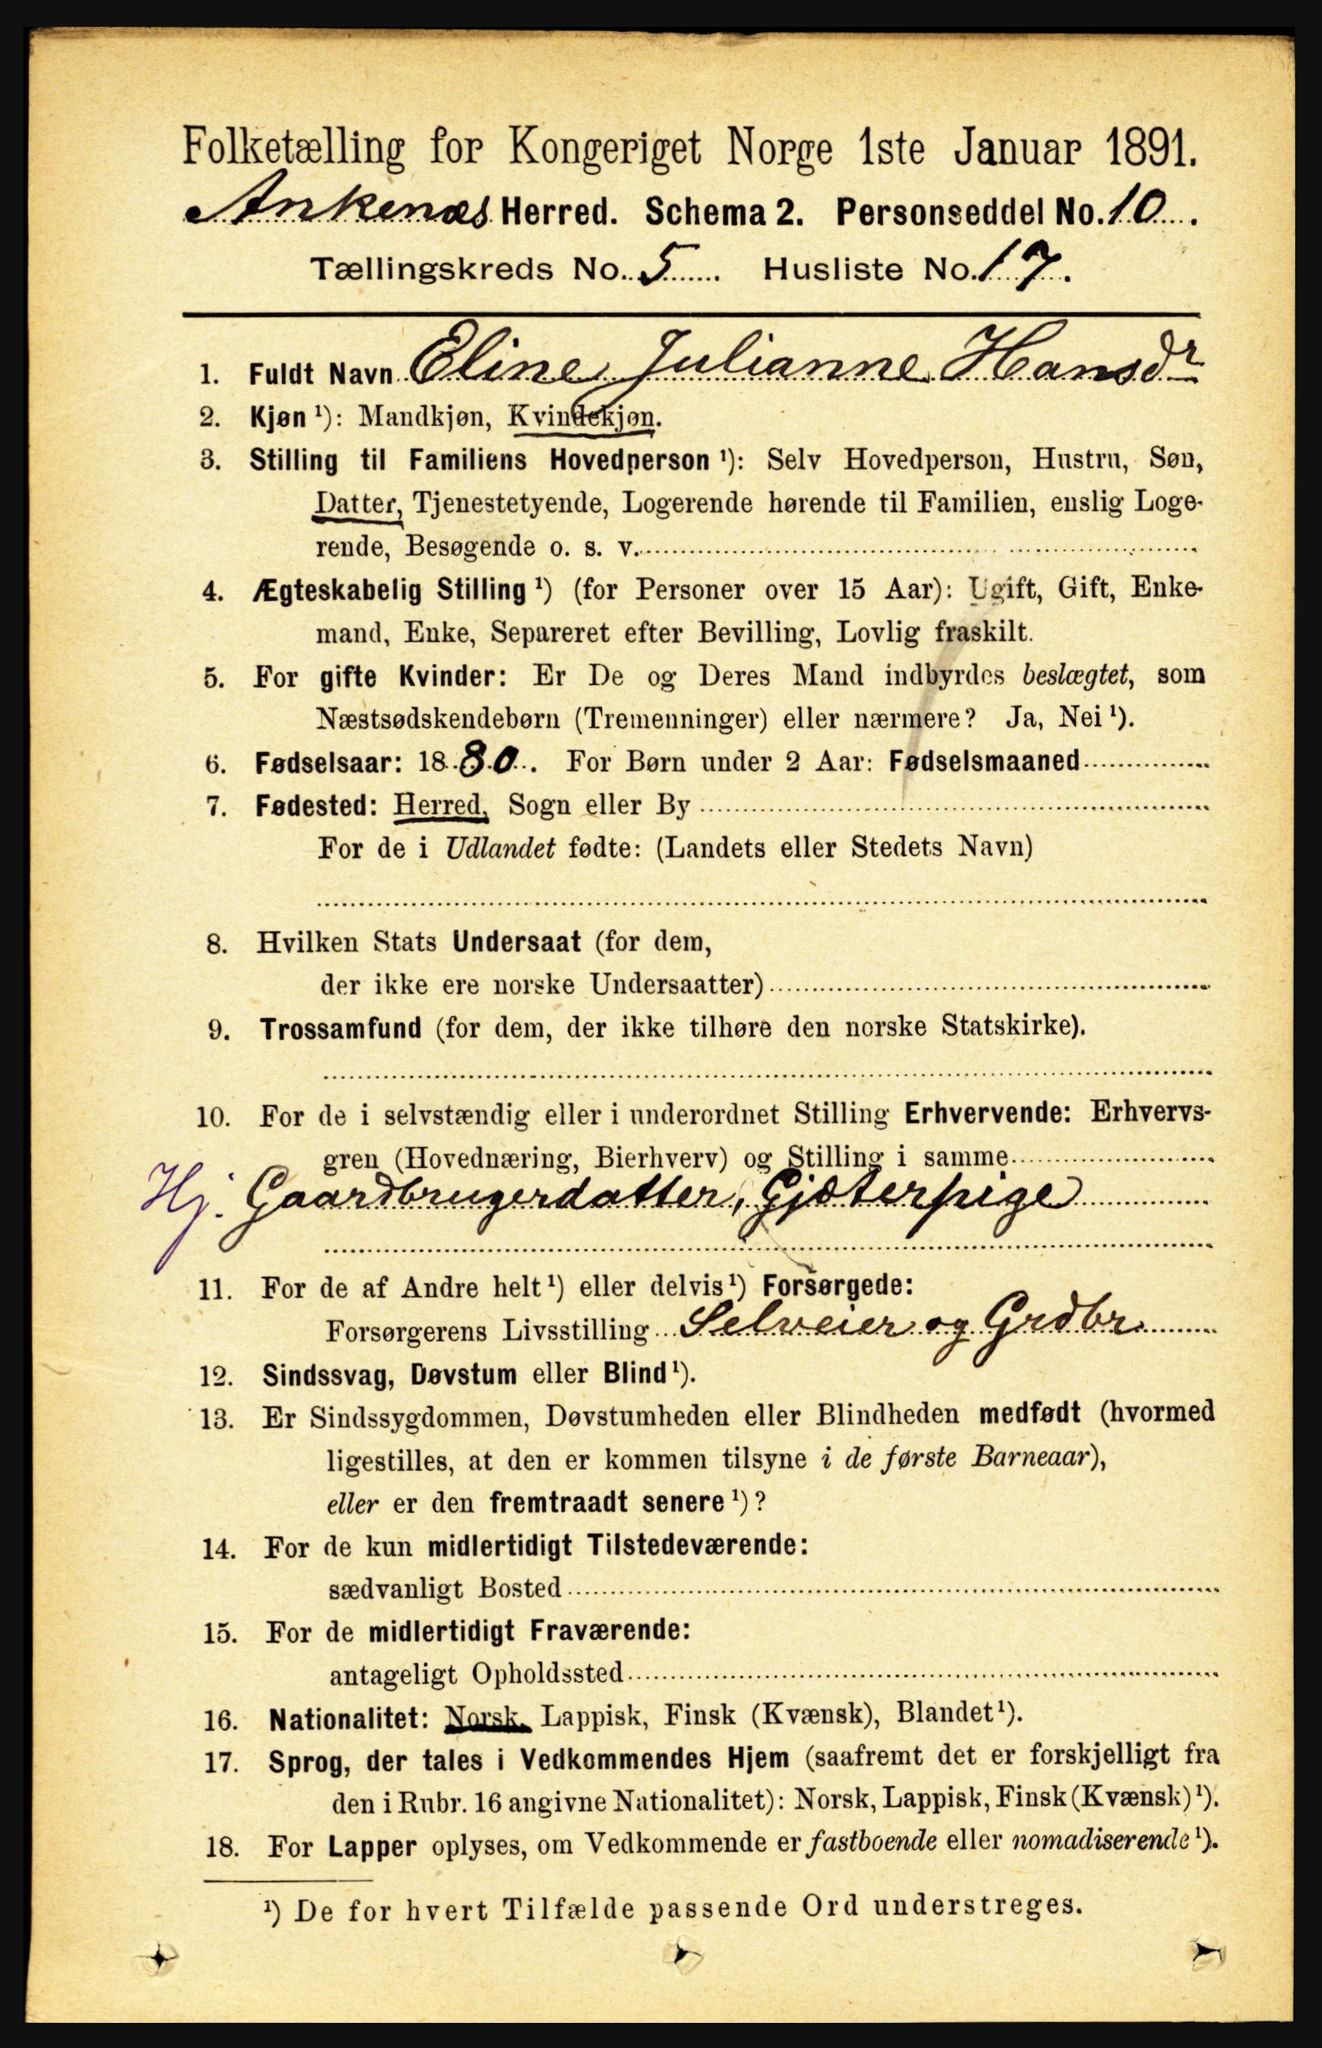 Folketælling for Kongeriget Norge 1ste Januar 1891.
Ankenæs Herred. Schema 2. Personseddel No. 10.
Tællingskreds No. 5. Husliste No. 17.
1. Fuldt Navn Eline Julianne Hansdr
2. Kjøn ¹): Mandkjøn, Kvindekjøn.
3. Stilling til Familiens Hovedperson ¹): Selv Hovedperson, Hustru, Søn,
Datter, Tjenestetyende, Logerende hørende til Familien, enslig Loge-
rende, Besøgende o. s. v.
4. Ægteskabelig Stilling ¹) (for Personer over 15 Aar): Ugift, Gift, Enke-
mand, Enke, Separeret efter Bevilling, Lovlig fraskilt.
5. For gifte Kvinder: Er De og Deres Mand indbyrdes beslægtet, som
Næstsødskendebørn (Tremenninger) eller nærmere? Ja, Nei ¹).
6. Fødselsaar: 1880. For Børn under 2 Aar: Fødselsmaaned
7. Fødested: Herred, Sogn eller By
For de i Udlandet fødte: (Landets eller Stedets Navn)
8. Hvilken Stats Undersaat (for dem,
der ikke ere norske Undersaatter)
9. Trossamfund (for dem, der ikke tilhøre den norske Statskirke).
10. For de i selvstændig eller i underordnet Stilling Erhvervende: Erhvervs-
gren (Hovednæring, Bierhverv) og Stilling i samme
Hj. Gaardbrugerdatter, Gjæterpige
11. For de af Andre helt ¹) eller delvis ¹) Forsørgede:
Forsørgerens Livsstilling Selveier og Grdbr.
12. Sindssvag, Døvstum eller Blind ¹).
13. Er Sindssygdommen, Døvstumheden eller Blindheden medfødt (hvormed
ligestilles, at den er kommen tilsyne i de første Barneaar),
eller er den fremtraadt senere ¹)?
14. For de kun midlertidigt Tilstedeværende:
sædvanligt Bosted
15. For de midlertidigt Fraværende:
antageligt Opholdssted
16. Nationalitet: Norsk, Lappisk, Finsk (Kvænsk), Blandet ¹).
17. Sprog, der tales i Vedkommendes Hjem (saafremt det er forskjelligt fra
den i Rubr. 16 angivne Nationalitet): Norsk, Lappisk, Finsk (Kvænsk) ¹).
18. For Lapper oplyses, om Vedkommende er fastboende eller nomadiserende ¹).
¹) De for hvert Tilfælde passende Ord understreges.